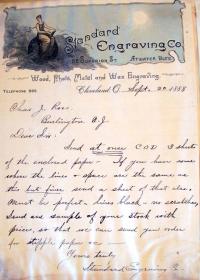 Standard
Engraving Co.
Superior St. Atwater Bldg.
Wood, Photo, Metal and Wax Engraving.
TELEPHONE
Cleveland, O., Sept. 20 1888
Chas J. Ross
Burlington N.J.
Dear Sir:
Send at once C.O.D 3 sheets
of the enclosed paper – If you have some
where the lines & space are the same as
this but finer send a sheet of that also.
Must be perfect – lines black – no scratches,
Send me sample of your stock with
price, so that we can send you order
for stipple paper
Yours truly
Standard Engraving Co